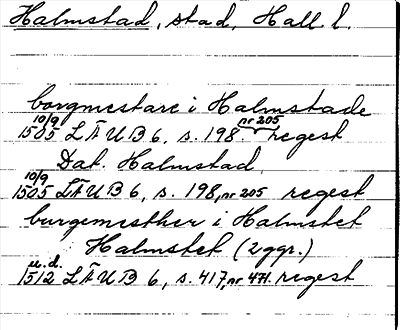 Halmstad, stad, Hall. l.
borgmestare i Halmstade
10/9 1505 LÄUB 6, s. 198 nr 205 regest
Dat. Halmstad
10/9 1505 LÄUB 6, s. 198, nr 205 regest
burgemesther i Halmstet
Halmstet (2ggr.)
u.d. 1512 LÄUB 6, s. 417, nr 471. regest